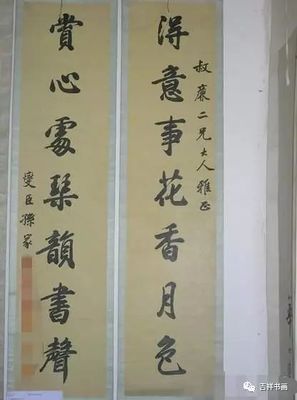 叔廉二兄大人雅正
得意事花香月色
賞心處琴韻書聲
燮臣孫家
吉祥书画